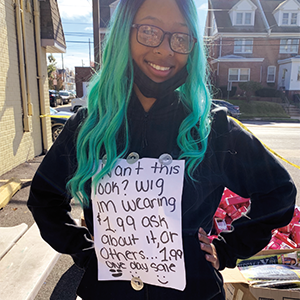 Want this
look? Wig
im wearing
$1.99 ask
about it, Or
Others... 1.99
one day sale